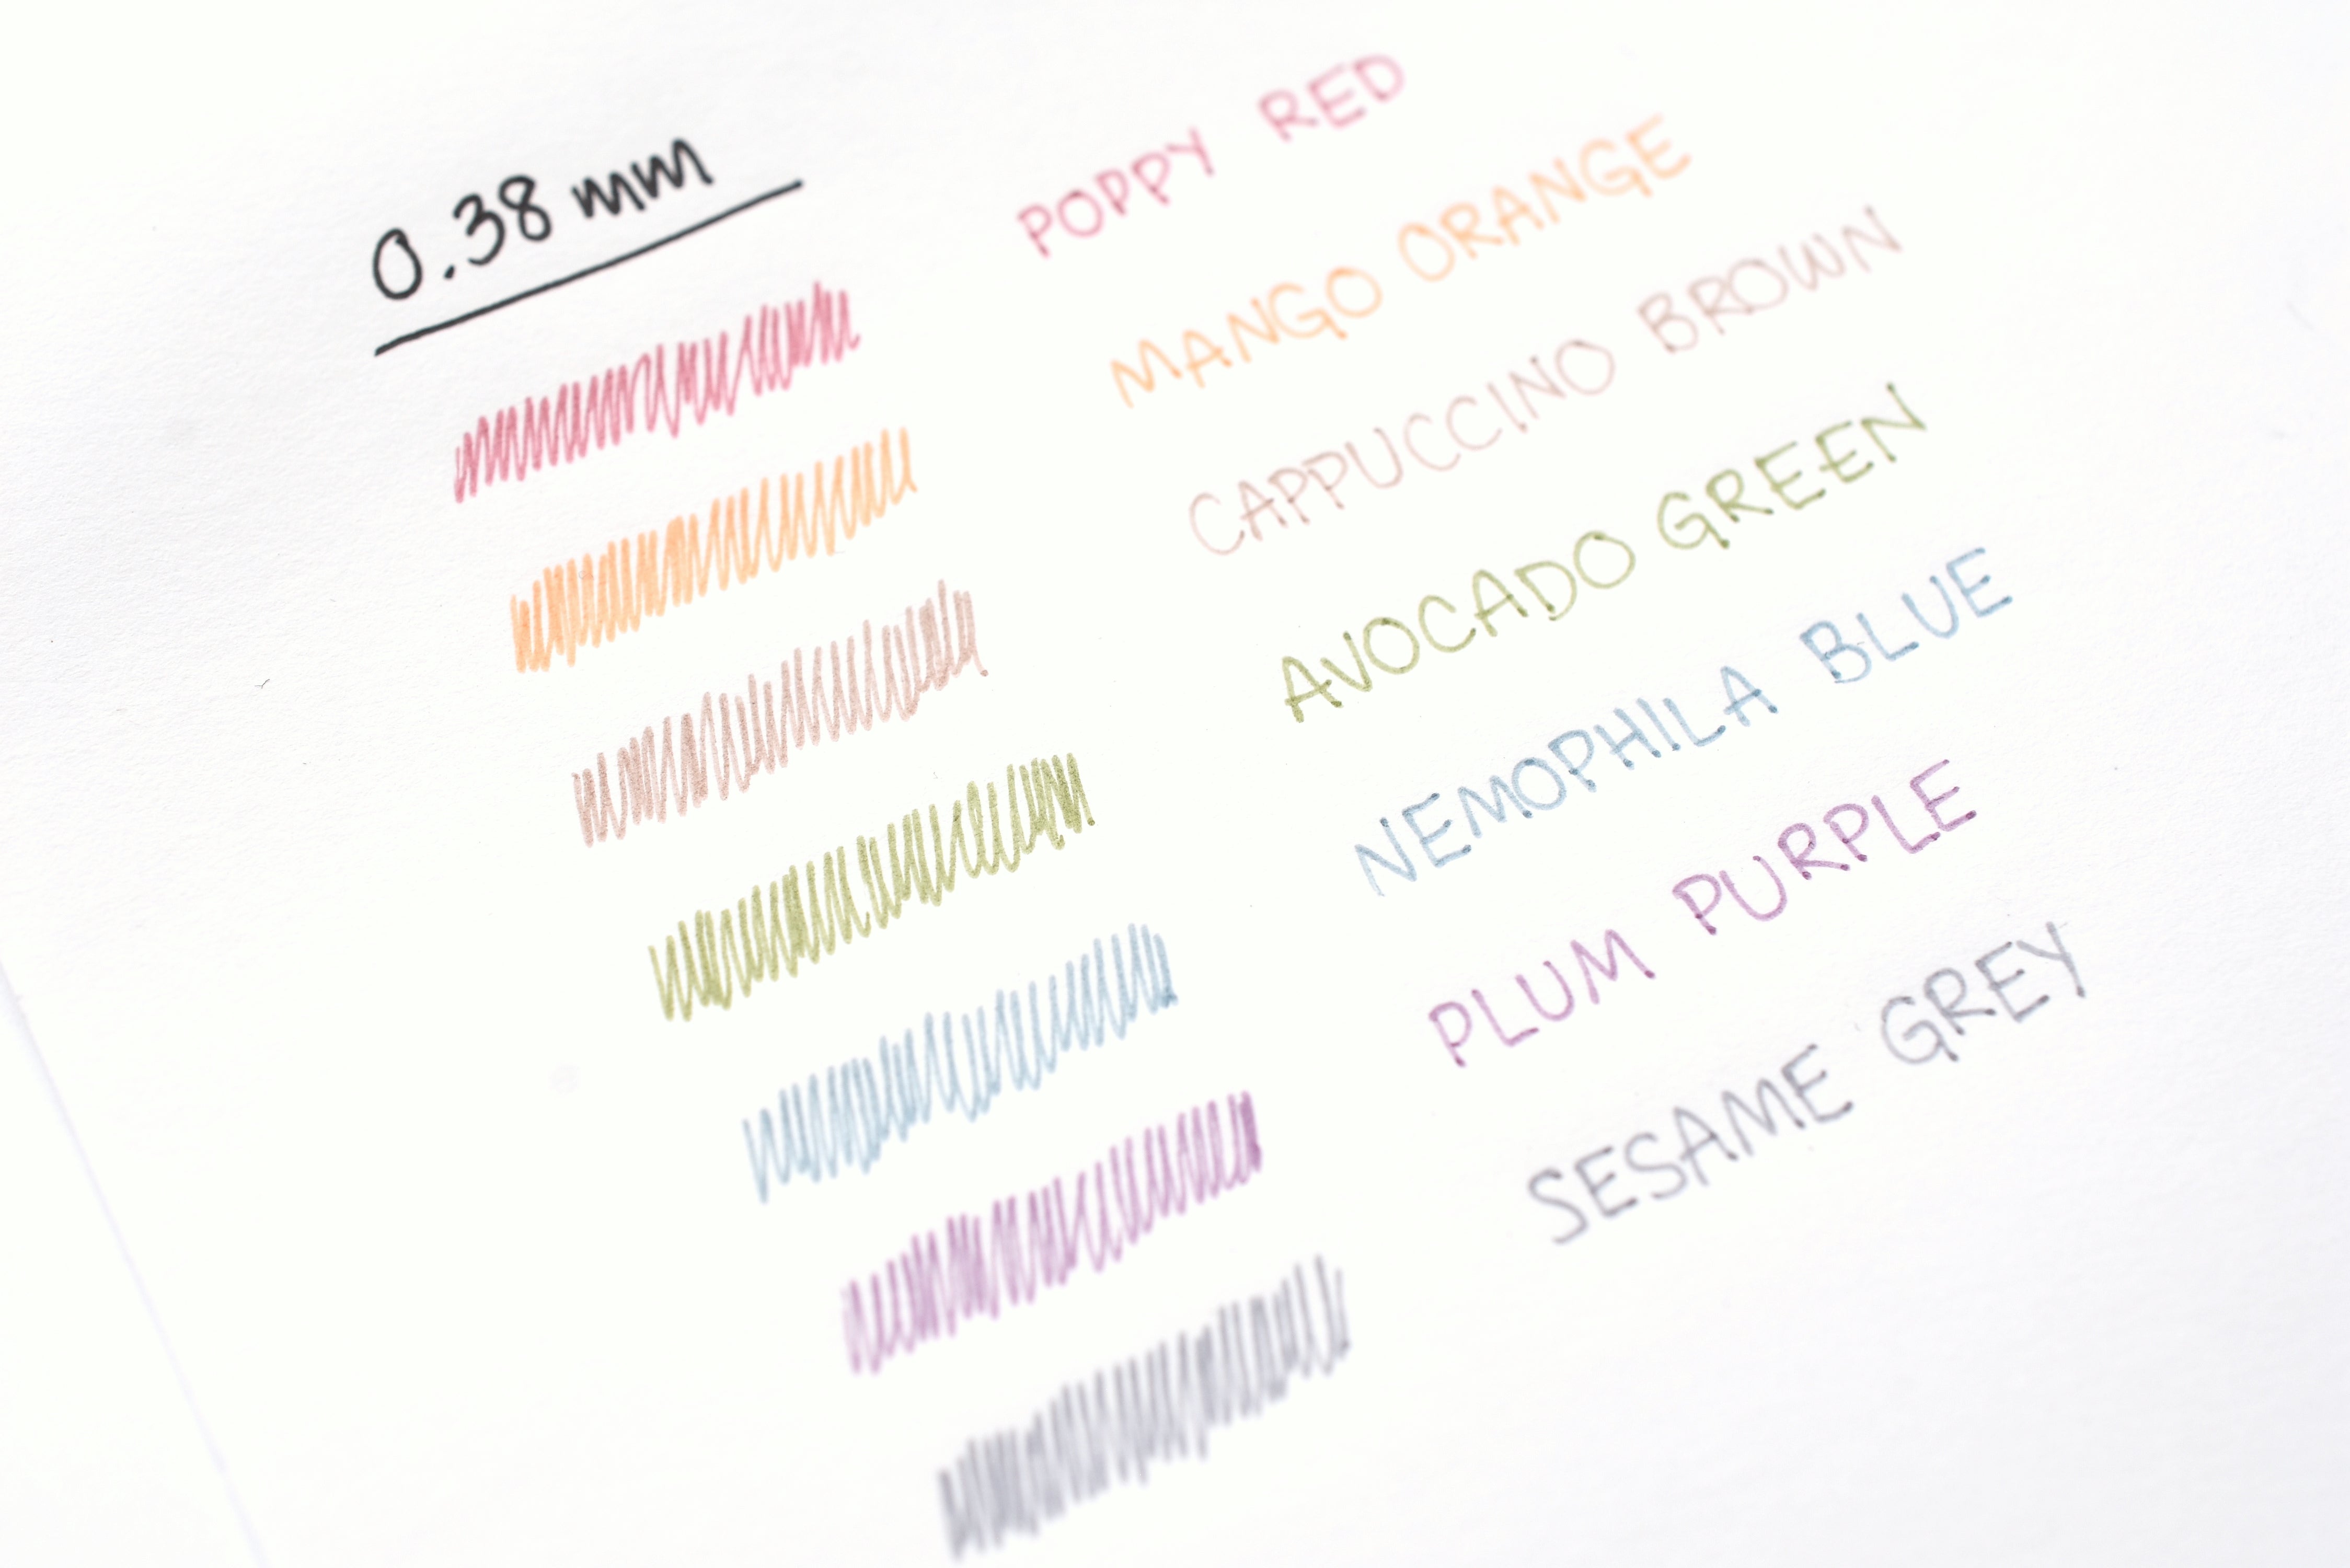 0.38 mm
POPPY RED
MANGO ORANGE
CAPPUCCINO BROWN
AVOCADO GREEN
NEMOPHILA BLUE
PLUM PURPLE
SESAME GREY